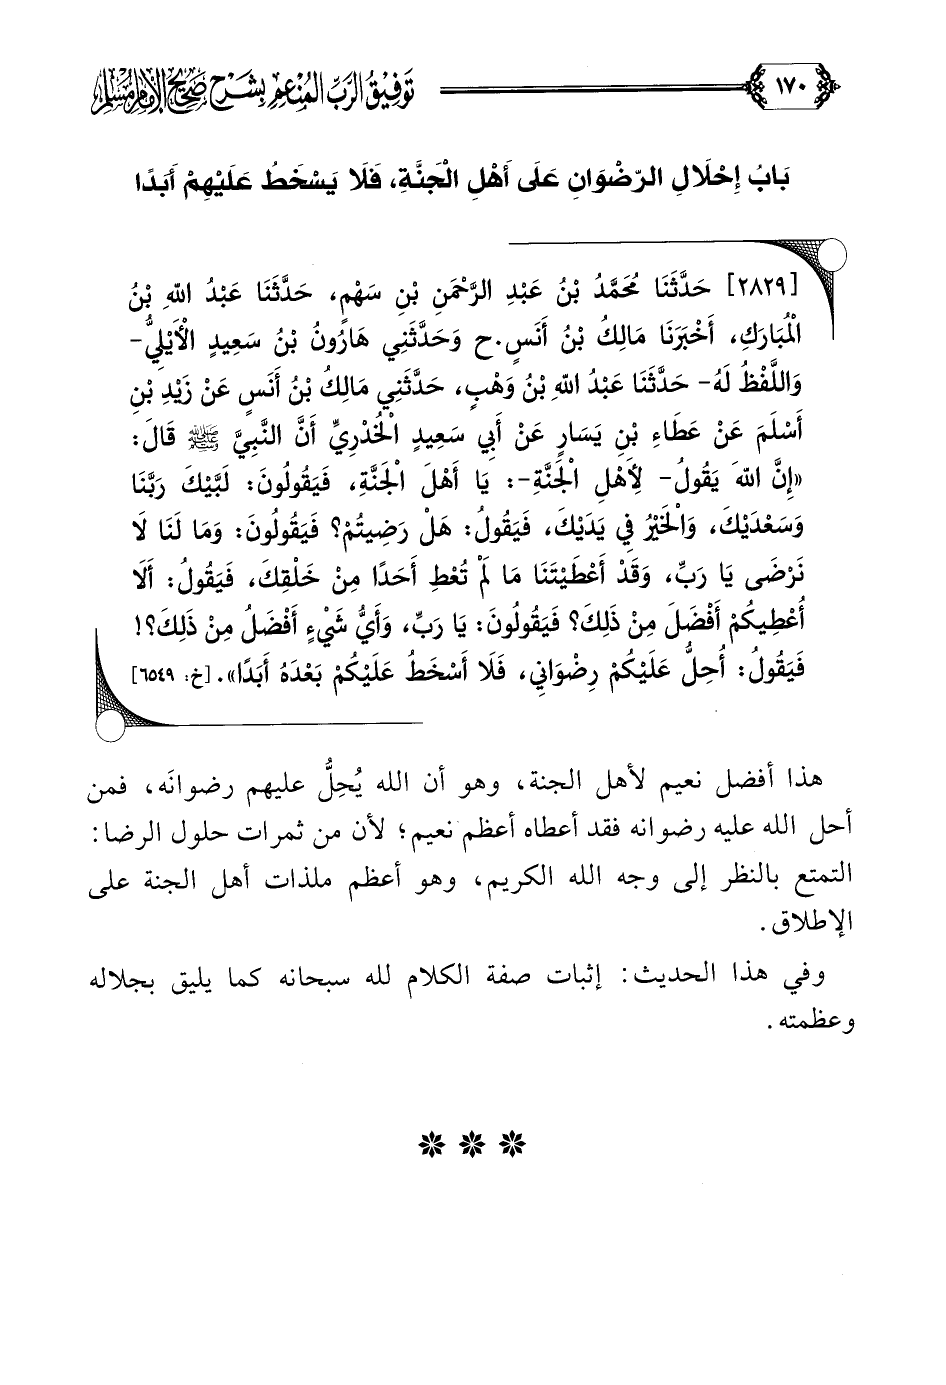 ١٧٠
توفيق الرب المنعم بشرح صحيح الإمام مسلم
بَابُ إِحْلَالِ الرِّضْوَانِ عَلَى أَهْلِ الْجَنَّةِ، فَلَا يَسْخَطُ عَلَيْهِمْ أَبَدًا
[٢٨٢٩] حَدَّثَنَا مُحَمَّدُ بْنُ عَبْدِ الرَّحْمَنِ بْنِ سَهْمٍ، حَدَّثَنَا عَبْدُ اللهِ بْنُ
الْمُبَارَكِ، أَخْبَرَنَا مَالِكُ بْنُ أَنَسٍ.ح وَحَدَّثَنِي هَارُونُ بْنُ سَعِيدٍ الْأَيْلِيُّ-
وَاللَّفْظُ لَهُ- حَدَّثَنَا عَبْدُ اللهِ بْنُ وَهْبٍ، حَدَّثَنِي مَالِكُ بْنُ أَنَسٍ عَنْ زَيْدِ بْنِ
أَسْلَمَ عَنْ عَطَاءِ بْنِ يَسَارٍ عَنْ أَبِي سَعِيدٍ الْخُدْرِيِّ أَنَّ النَّبِيَّ ﷺ قَالَ:
«إِنَّ اللهَ يَقُولُ- لِأَهْلِ الْجَنَّةِ-: يَا أَهْلَ الْجَنَّةِ، فَيَقُولُونَ: لَبَّيْكَ رَبَّنَا
وَسَعْدَيْكَ، وَالْخَيْرُ فِي يَدَيْكَ، فَيَقُولُ: هَلْ رَضِيتُمْ؟ فَيَقُولُونَ: وَمَا لَنَا لَا
نَرْضَى يَا رَبِّ، وَقَدْ أَعْطَيْتَنَا مَا لَمْ تُعْطِ أَحَدًا مِنْ خَلْقِكَ، فَيَقُولُ: أَلَا
أُعْطِيكُمْ أَفْضَلَ مِنْ ذَلِكَ؟ فَيَقُولُونَ: يَا رَبِّ، وَأَيُّ شَيْءٍ أَفْضَلُ مِنْ ذَلِكَ؟!
فَيَقُولُ: أُحِلُّ عَلَيْكُمْ رِضْوَانِي، فَلَا أَسْخَطُ عَلَيْكُمْ بَعْدَهُ أَبَدًا». [خ: ٦٥٤٩]
هذا أفضل نعيم لأهل الجنة، وهو أن الله يُحِلُّ عليهم رضوانَه، فمن
أحل الله عليه رضوانه فقد أعطاه أعظم نعيم؛ لأن من ثمرات حلول الرضا:
التمتع بالنظر إلى وجه الله الكريم، وهو أعظم ملذات أهل الجنة على
الإطلاق.
وفي هذا الحديث: إثبات صفة الكلام لله سبحانه كما يليق بجلاله
وعظمته.